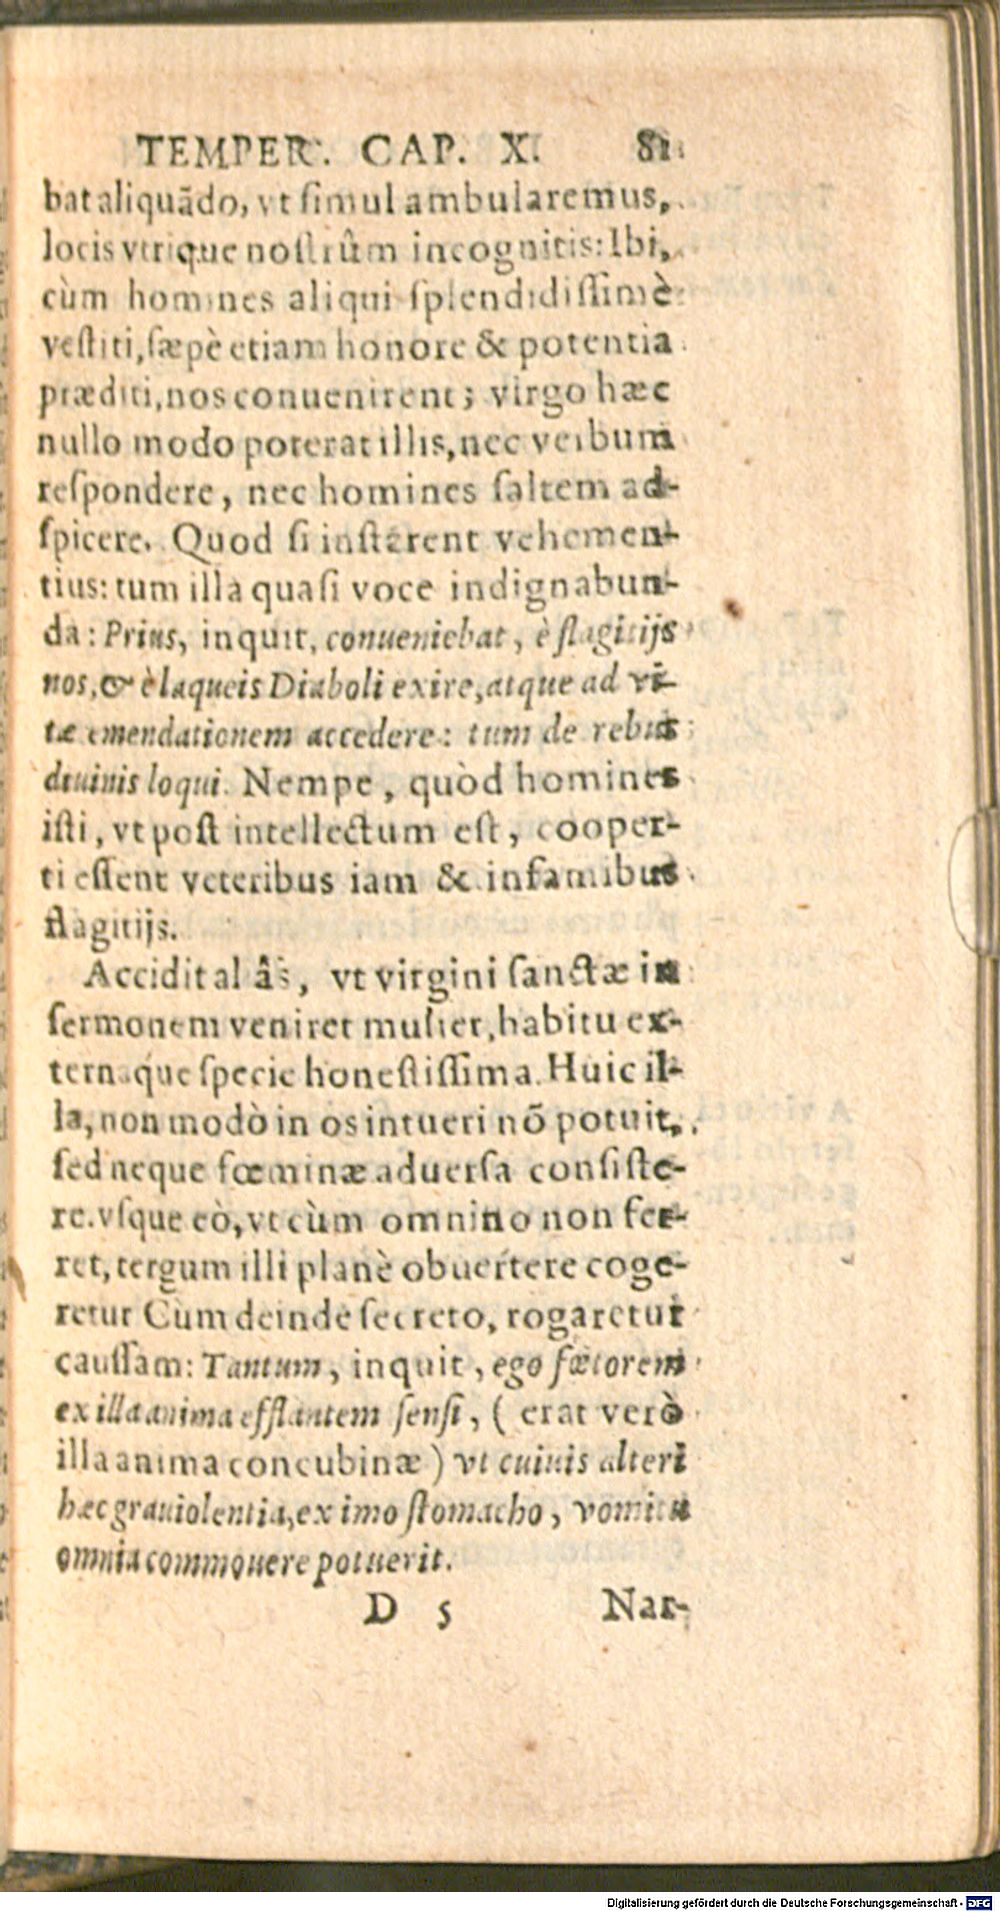 TEMPER. CAP. X. 81
bat aliquãdo, vt ſimul ambularemus,
locis vtrique noſtrûm incognitis: Ibi,
cùm homines aliqui ſplendidiſſimè
veſtiti, ſæpè etiam honore & potentia
præditi, nos conuenirent; virgo hæc
nullo modo poterat illis, nec verbum
reſpondere, nec homines ſaltem ad-
ſpicere. Quod ſi inſtarent vehemen-
tius: tum illa quaſi voce indignabun-
da: Prius, inquit, conueniebat, è flagitijs
nos, & è laqueis Diaboli exire, atque ad vi-
tæ emendationem accedere: tum de rebus
diuinis loqui. Nempe, quòd homines
iſti, vt poſt intellectum eſt, cooper-
ti eſſent veteribus iam & infamibus
flagitijs.
Accidit aliâs, vt virgini ſanctæ in
ſermonem veniret mulier, habitu ex-
ternaque ſpecie honeſtiſſima. Huic il-
la, non modò in os intueri nõ potuit,
ſed neque fœminæ aduerſa conſiſte-
re. vſque eò, vt cùm omnino non fer-
ret, tergum illi planè obuertere coge-
retur Cùm deinde ſecreto, rogaretur
cauſſam: Tantum, inquit, ego fœtorem
ex illa anima efflantem ſenſi, ( erat verò
illa anima concubinæ ) vt cuiuis alteri
hæc grauiolentia, ex imo ſtomacho, vomitu
omnia commouere potuerit.
D 5 Nar-
Digitalisierung gefördert durch die Deutsche Forschungsgemeinschaft - DFG